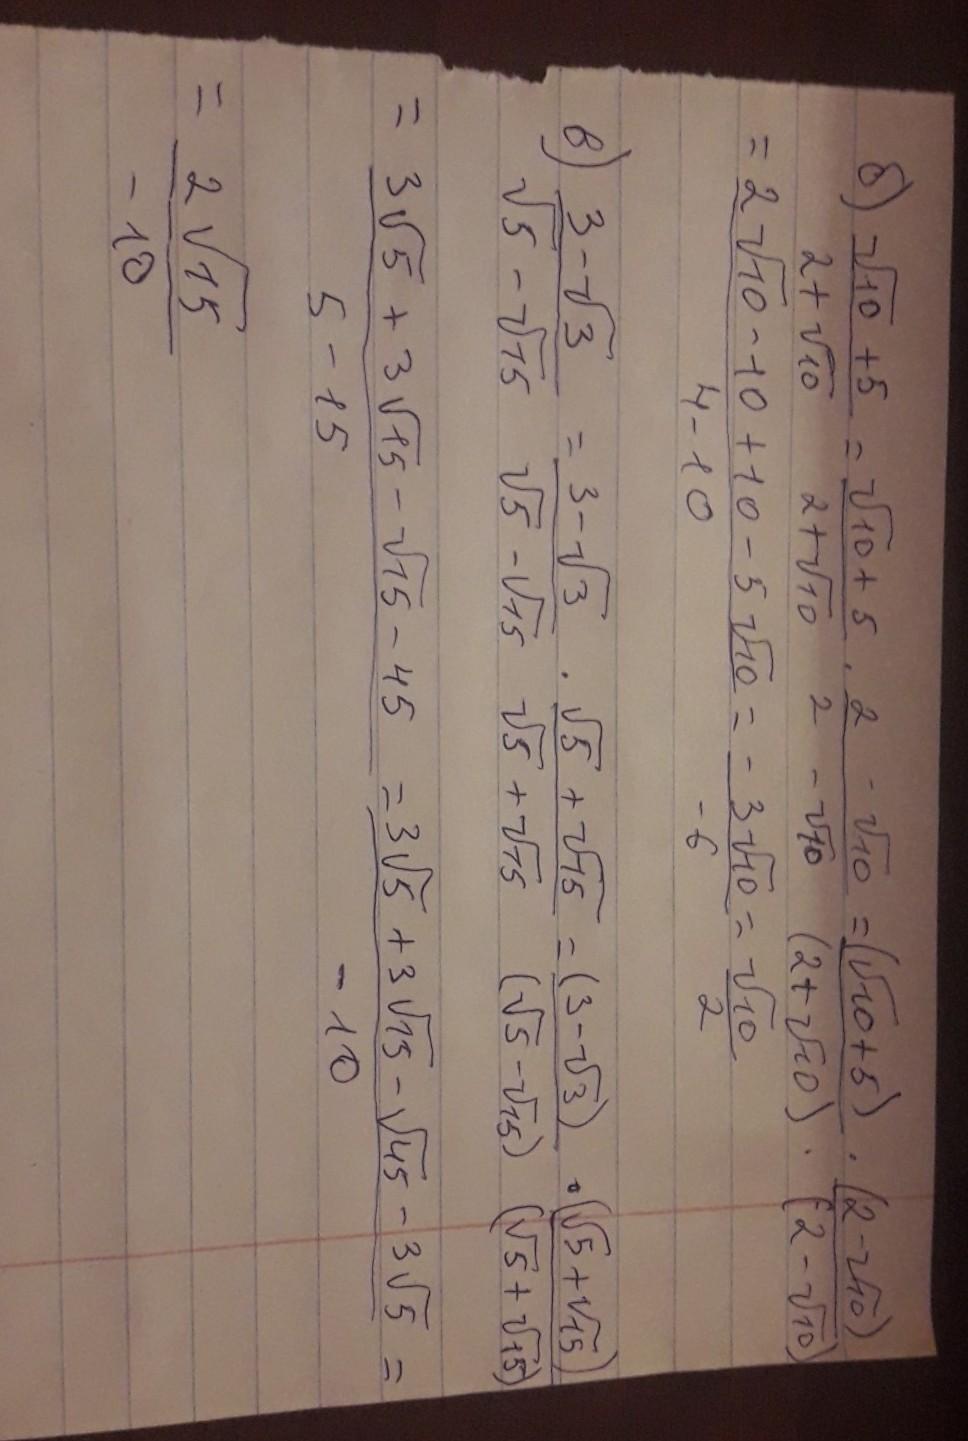 б) √10 + 5 = √10 + 5 . 2 - √10 = (√10 + 5) . (2 - √10)
2 + √10 2 + √10 2 - √10 (2 + √10) . (2 - √10)
= 2√10 - 10 + 10 - 5√10 = - 3√10 = √10
4 - 10 - 6 2
в) 3 - √3 = 3 - √3 . √5 + √15 = (3 - √3) . (√5 + √15)
√5 - √15 √5 - √15 √5 + √15 (√5 - √15) (√5 + √15)
= 3√5 + 3√15 - √15 - 45 = 3√5 + 3√15 - √45 - 3√5 =
5 - 15 - 10
= 2√15
- 10